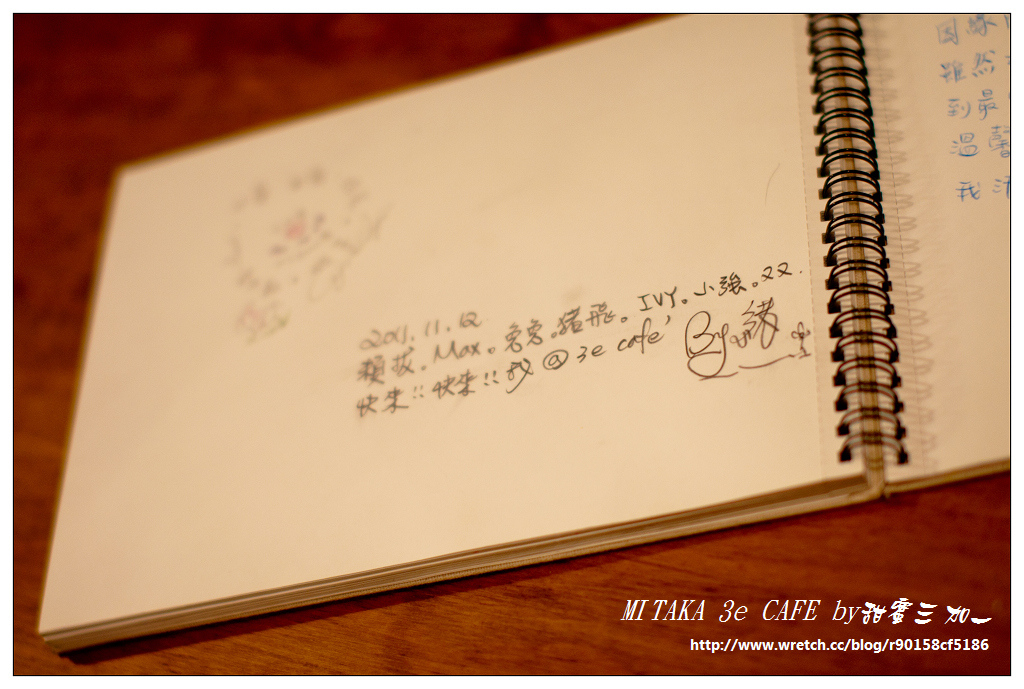 2011.11.12
類拔。Max。兔兔。豬飛。IVY。小強。双双.
快來!! 快來!! 我 @ 3e cafe' By
因緣
雖然
到最
溫馨
我
MITAKA 3e CAFE by甜蜜三加一
http://www.wretch.cc/blog/r90158cf5186